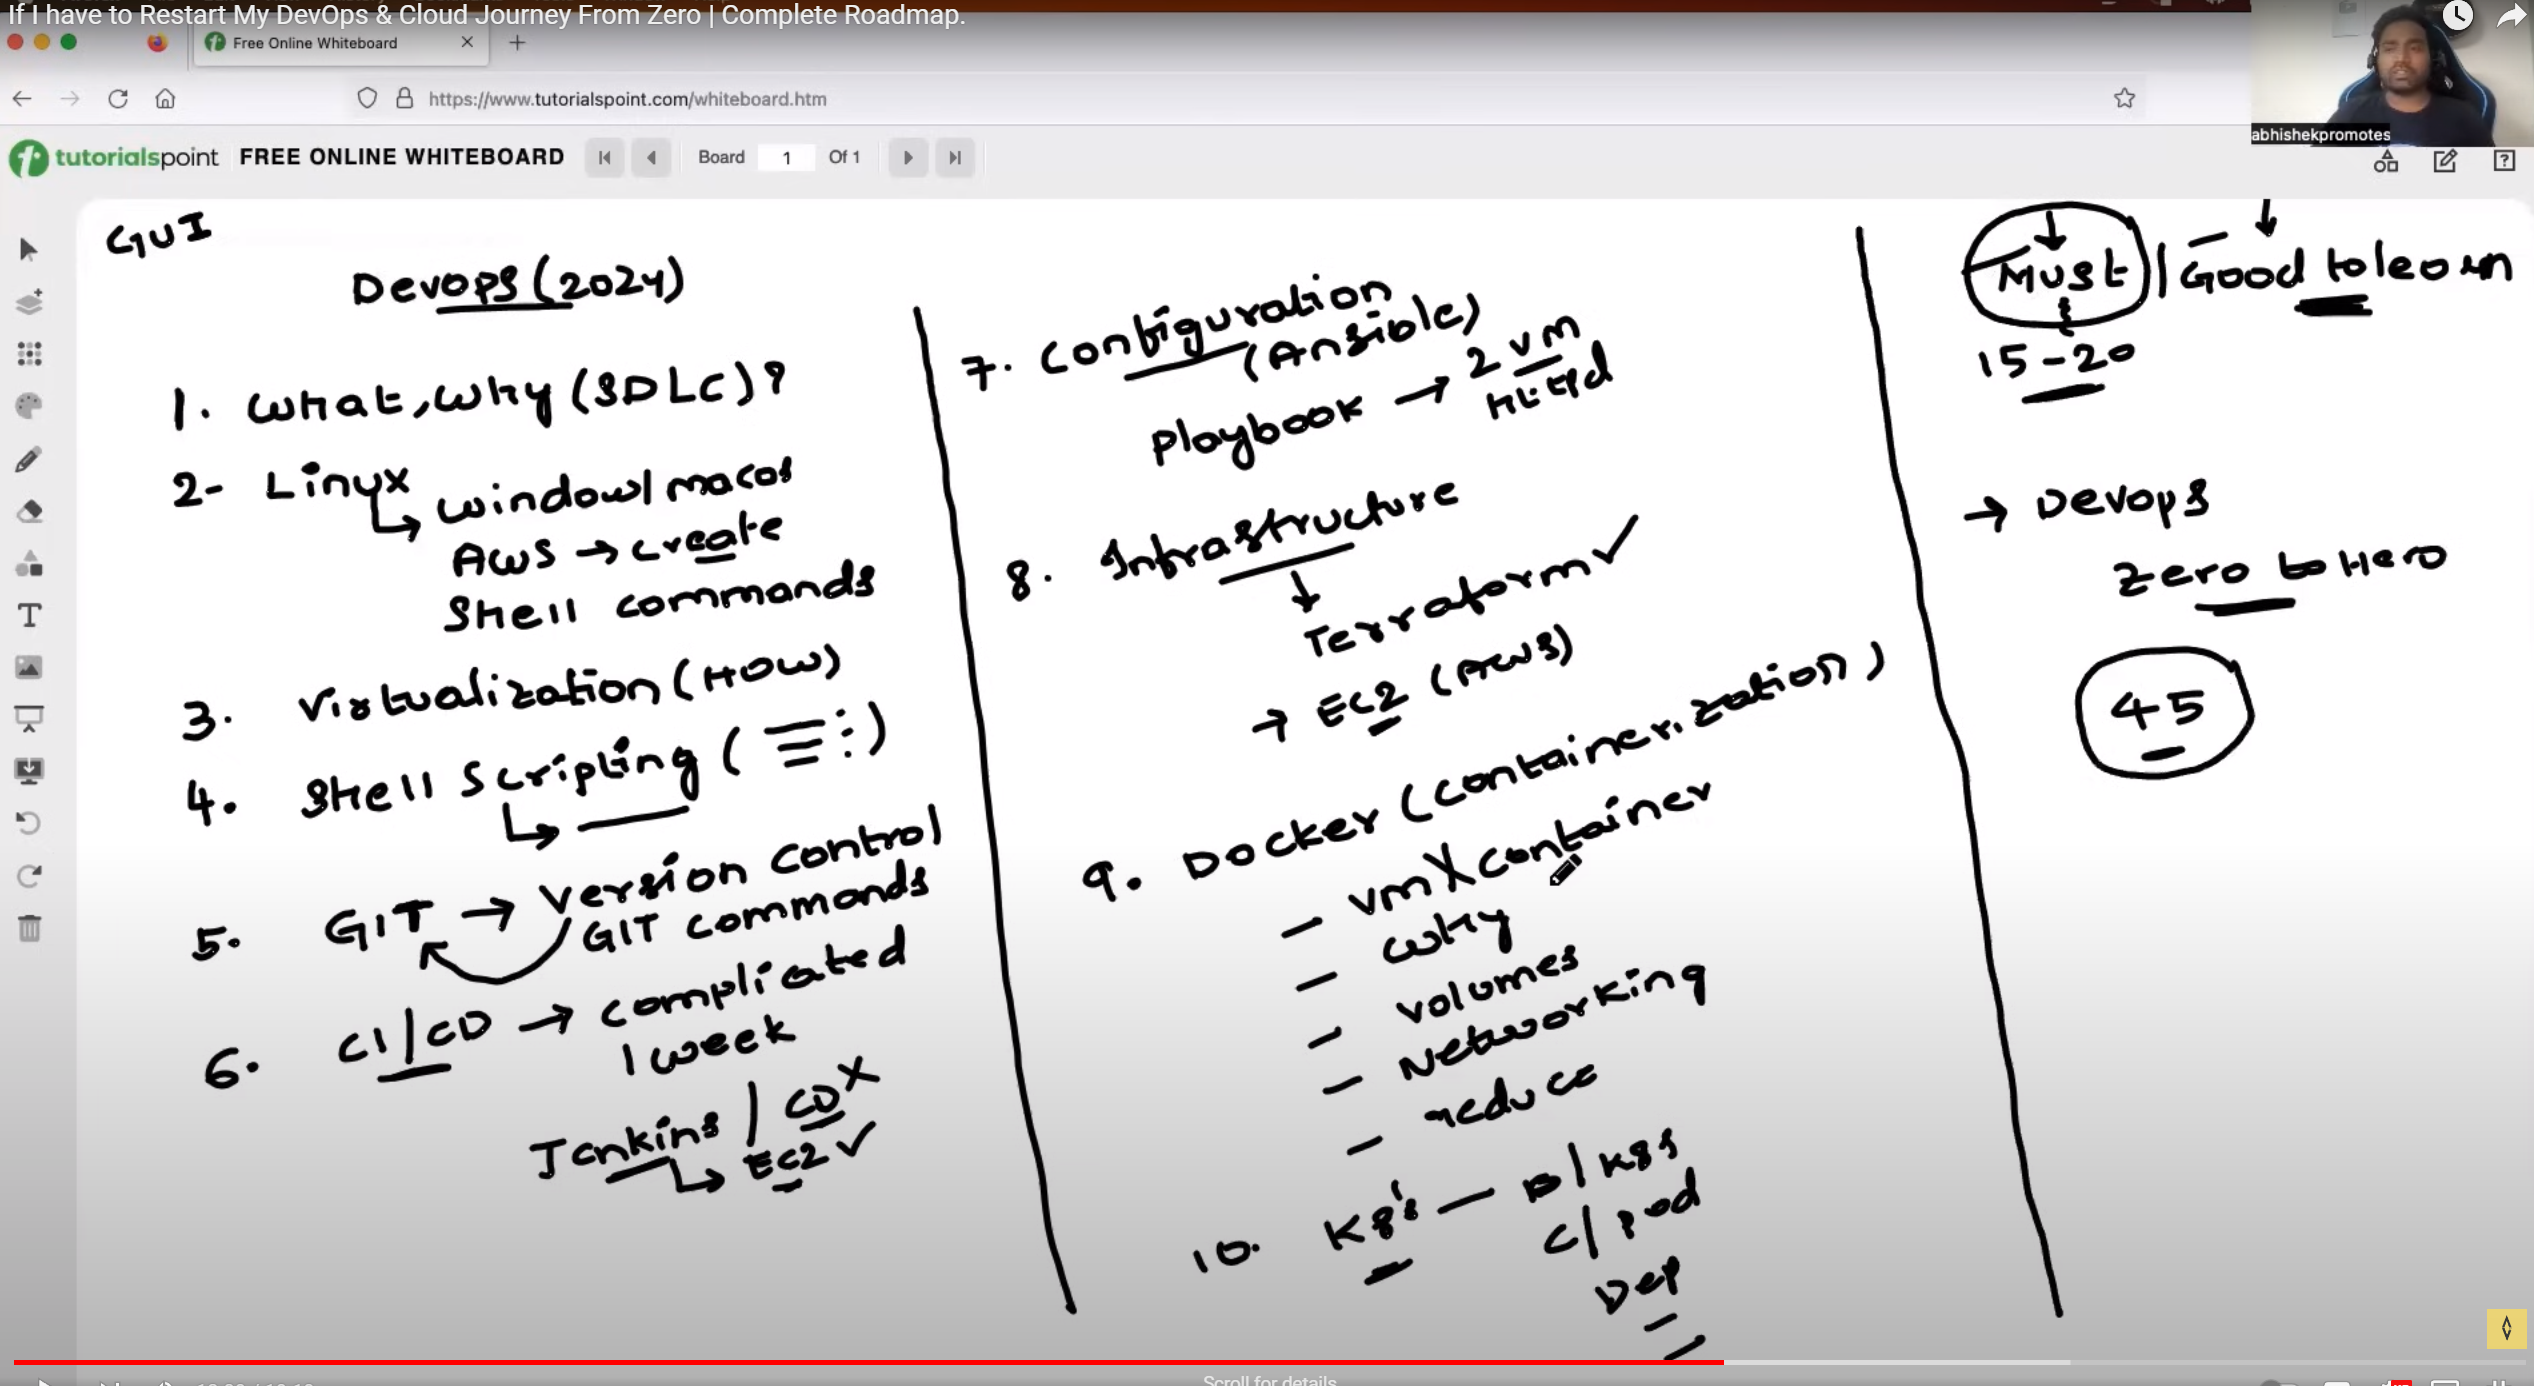 If I have to Restart My DevOps & Cloud Journey From Zero | Complete Roadmap.
Free Online Whiteboard
https://www.tutorialspoint.com/whiteboard.htm
abhishekpromotes
tutorialspoint FREE ONLINE WHITEBOARD Board 1 Of 1
GUI
Devops (2024)
1. What, Why (SDLC)?
2- Linux
Window/macos
AWS → create
Shell commands
3. Virtualization (HOW)
4. Shell Scripting ( )
5. GIT → Version control
GIT commands
6. CI/CD → complicated
1 week
Jenkins / CD X
EC2 ✓
7. Configuration
(Ansible)
Playbook → 2 VM
httpd
8. Infrastructure
Terraform ✓
→ EC2 (AWS)
9. Docker (containerization)
- VM X container
- Why
- volumes
- Networking
- reduce
10. K8's - D/K8s
C/pod
Dep
Must | Good to learn
15-20
→ Devops
Zero to Hero
45
Scroll for details